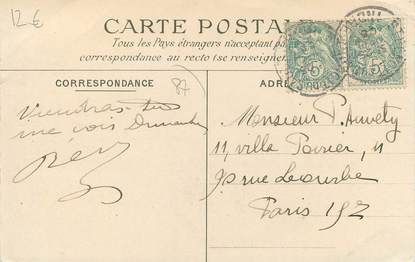 12€
CARTE POSTA
Tous les Pays étrangers n'acceptant pa
correspondance au recto (se renseigner
CORRESPONDANCE
87
ADRE
Viendras-tu
me voir Dimanche
Monsieur P.
11, villa Poirier, 11
90 rue Lecourbe
Paris 15e
5
5